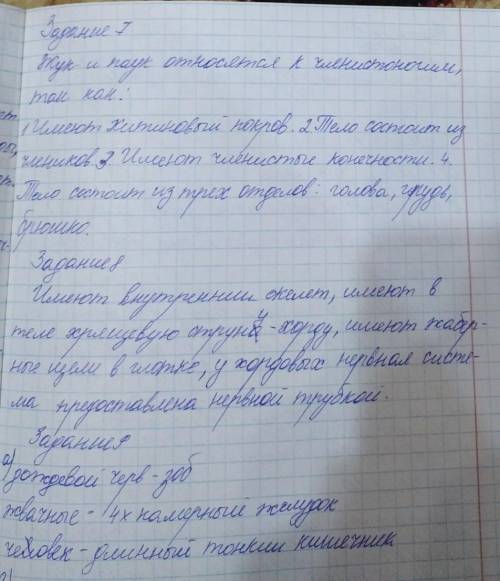 Задание 7
Жук и паук относятся к членистоногим,
так как:
1 Имеют Хитиновый покров. 2 Тело состоит из
члеников 3 Имеют членистые конечности. 4.
Тело состоит из трех отделов: голова, грудь,
брюшко.
Задание 8
Имеют внутренний скелет, имеют в
теле хрящевую струну - хорду, имеют жабер-
ные щели в глотке, у хордовых нервная систе-
ма предоставлена нервной трубкой.
Задание 9
а) дождевой черв - зоб
жвачные - 4х камерный желудок
человек - длинный тонкий кишечник